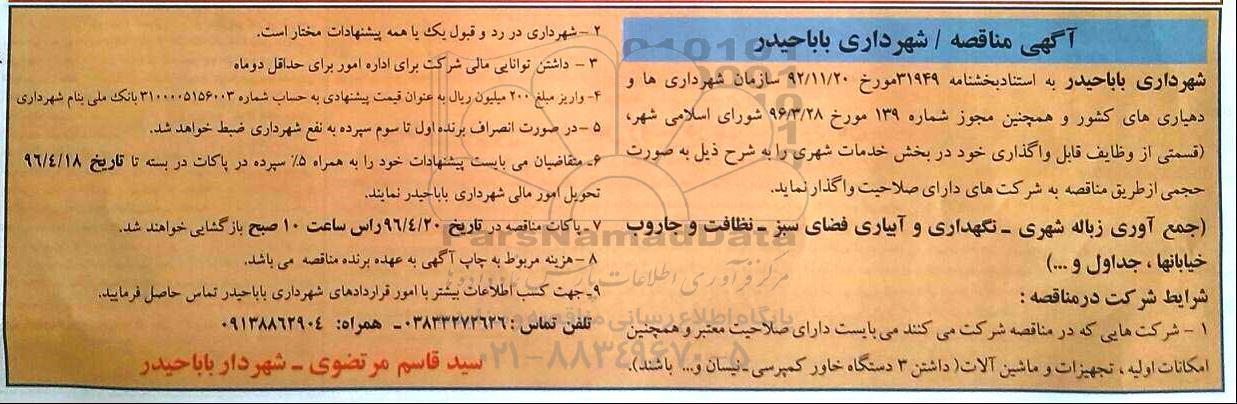 آگهی مناقصه / شهرداری باباحیدر
شهرداری باباحیدر به استنادبخشنامه ۳۱۹۴۹مورخ ۹۲/۱۱/۲۰ سازمان شهرداری ها و
دهیاری های کشور و همچنین مجوز شماره ۱۳۹ مورخ ۹۶/۳/۲۸ شورای اسلامی شهر،
(قسمتی از وظایف قابل واگذاری خود در بخش خدمات شهری را به شرح ذیل به صورت
حجمی ازطریق مناقصه به شرکت های دارای صلاحیت واگذار نماید.
(جمع آوری زباله شهری ـ نگهداری و آبیاری فضای سبز ـ نظافت و جاروب
خیابانها ، جداول و ...)
شرایط شرکت درمناقصه :
۱ - شرکت هایی که در مناقصه شرکت می کنند می بایست دارای صلاحیت معتبر و همچنین
امکانات اولیه ، تجهیزات و ماشین آلات( داشتن ۳ دستگاه خاور کمپرسی ـ نیسان و... باشند).
۲ -شهرداری در رد و قبول یک یا همه پیشنهادات مختار است.
۳ - داشتن توانایی مالی شرکت برای اداره امور برای حداقل دوماه
۴- واریز مبلغ ۲۰۰ میلیون ریال به عنوان قیمت پیشنهادی به حساب شماره ۳۱۰۰۰۰۵۱۵۶۰۰۳ بانک ملی بنام شهرداری
۵ -در صورت انصراف برنده اول تا سوم سپرده به نفع شهرداری ضبط خواهد شد.
۶ـ متقاضیان می بایست پیشنهادات خود را به همراه ۵٪ سپرده در پاکات در بسته تا تاریخ ۹۶/۴/۱۸
تحویل امور مالی شهرداری باباحیدر نمایند.
۷ ـ پاکات مناقصه در تاریخ ۹۶/۴/۲۰ راس ساعت ۱۰ صبح بازگشایی خواهند شد.
۸ -هزینه مربوط به چاپ آگهی به عهده برنده مناقصه می باشد.
۹ـ جهت کسب اطلاعات بیشتر با امور قراردادهای شهرداری باباحیدر تماس حاصل فرمایید.
تلفن تماس : ۰۳۸۳۳۲۷۲۶۲۶ ـ همراه: ۰۹۱۳۸۸۶۲۹۰۴
سید قاسم مرتضوی ـ شهردار باباحیدر
ParsNamadData
مرکز فرآوری اطلاعات پارس نماد داده ها
پایگاه اطلاع رسانی مناقصه و مزایده
۰۲۱-۸۸۳۴۹۶۷۰-۵